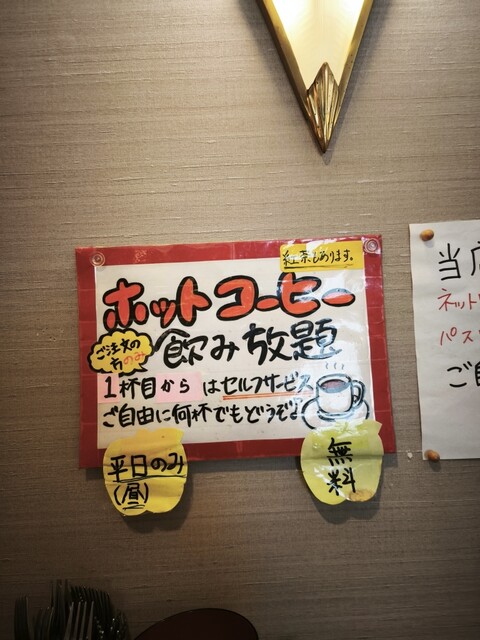 紅茶もあります。
ホットコーヒー
ご注文の
方のみ
飲み放題
1杯目からはセルフサービス
ご自由に何杯でもどうぞ♪
平日のみ
(昼)
無料
当店
ネット
パス
ご自